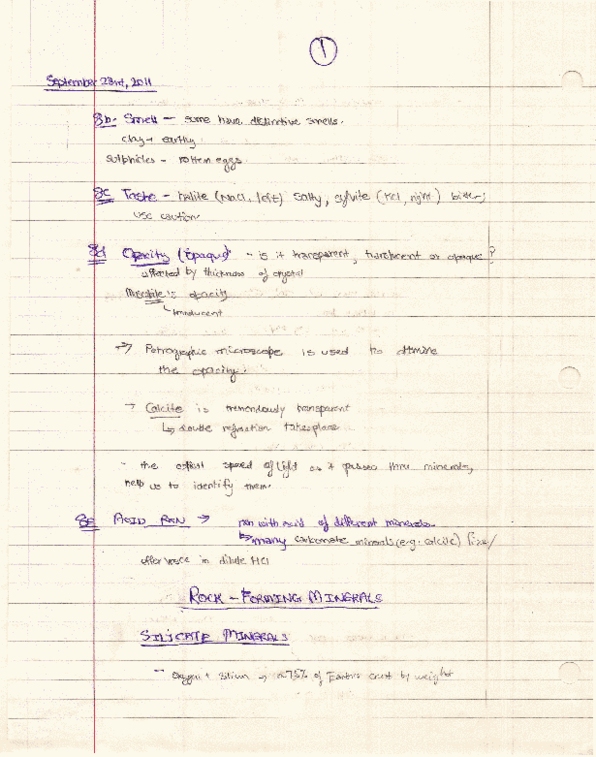 1
September 23rd, 2011
8b- Smell - some have distinctive smells.
clay → earthy.
sulphides - rotten eggs.
8c Taste - halite (NaCl, left) salty, sylvite (KCl, right) bitter;
use caution
8d Opacity (opaque) - is it transparent, translucent or opaque?
affected by thickness of crystal
opacity
translucent
→ Petrographic microscope is used to
the opacity.
→ Calcite is tremendously transparent
↳ double refraction takes place
- the speed of light as it passes thru minerals,
help us to identify them.
8e ACID RXN → rxn with acid of different minerals.
↳ many carbonate minerals (e.g. calcite) fizz/
effervesce in dilute HCl
ROCK - FORMING MINERALS
SILICATE MINERALS
- Oxygen + Silicon → ~75% of Earth's crust by weight